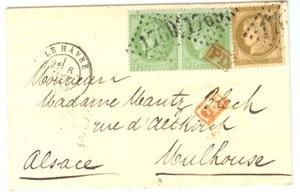 LE HAVRE
1769
1769
Monsieur
Madame Mantz Blech
rue d'Altkirch
Alsace Mulhouse